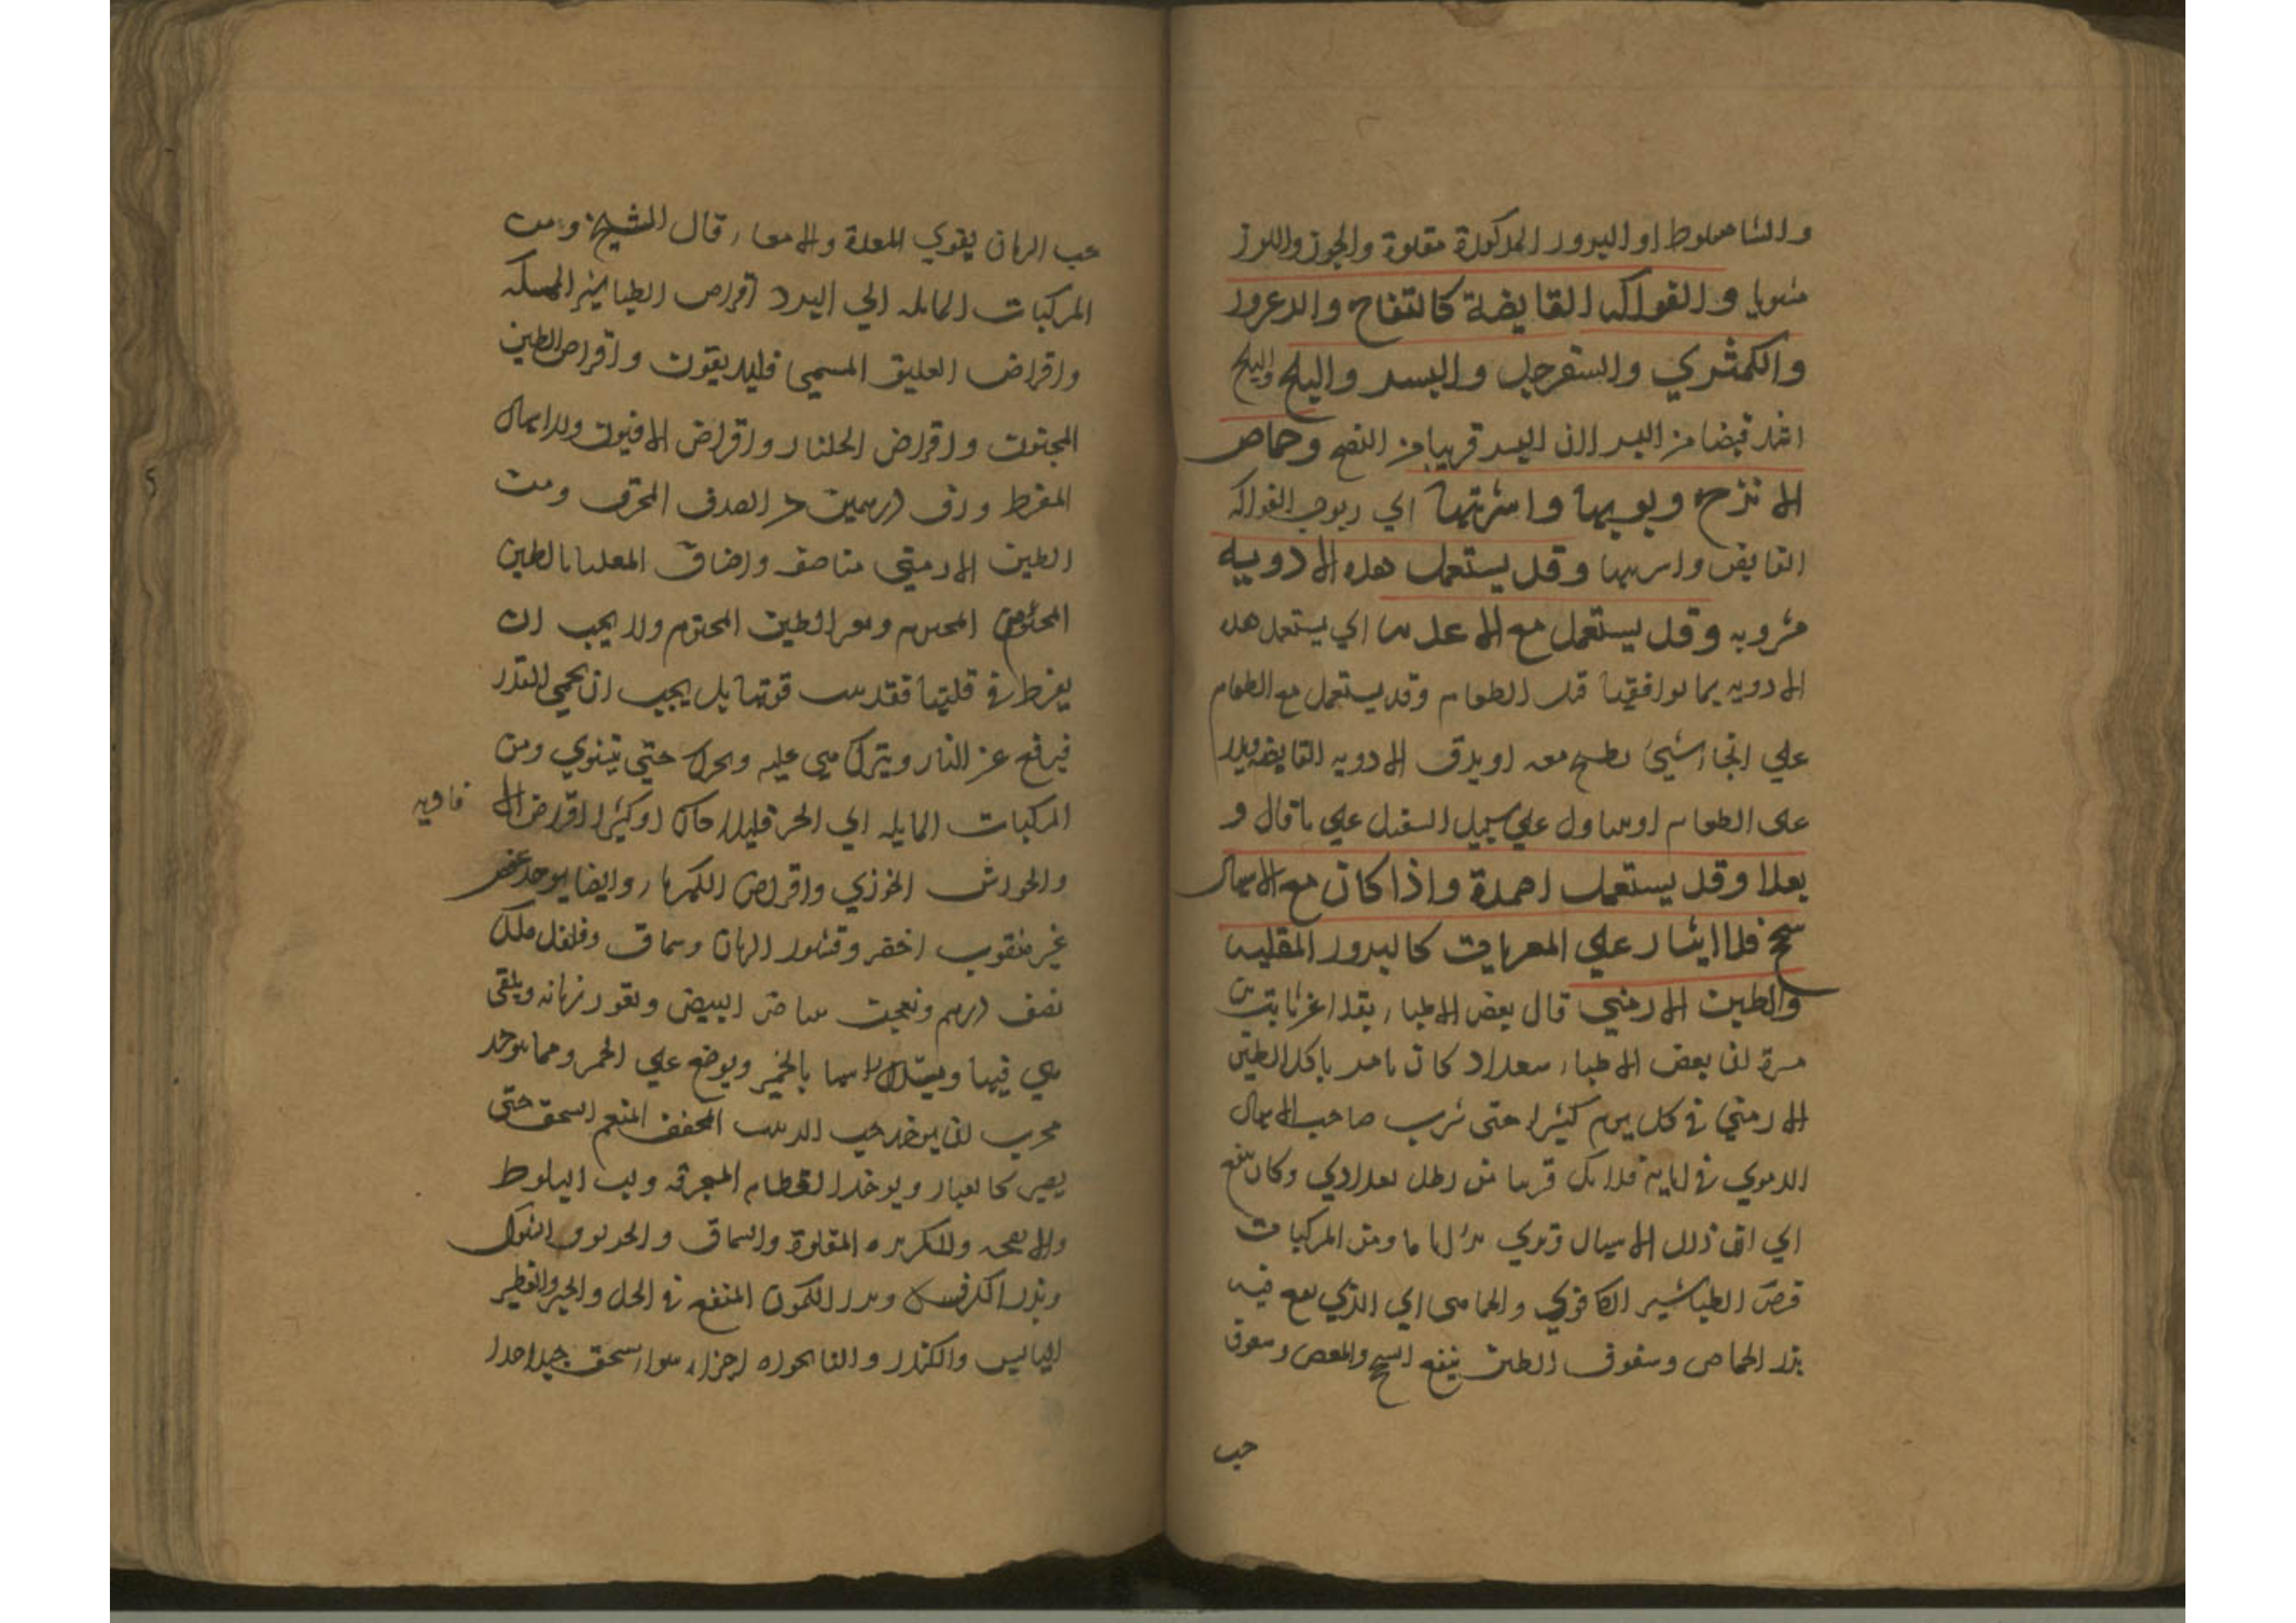 والشاهبلوط او البزور المذكورة مقلوة والجوز واللوز
مشويا و الفواكه القابضة كالتفاح والزعرور
والكمثري والسفرجل والبسر والبلح والبلح
اشد قبضا من البسر لان البسر قريبا من النضج وحماض
الاترج وبوبها واشربتها اي ربوب الفواكه
القابض واسربها وقد يستعمل هذه الادويه
مشروبه وقد يستعمل مع الاغديه اي يستعمل هذه
الادويه بما يوافقها قبل الطعام وقد يستعمل مع الطعام
علي انحا شيئ يطبخ معه او يدق الادويه القابضه ويذر
على الطعام او يتناول علي سبيل التنقل علي ما قال و
بعدا وقد يستعمل اضمدة واذا كان مع الاسهال
سحج فلا ايثار علي المغريات كالبزور المقليه
والطين الارمني قال بعض الاطباء بقداغرنا بت من
مرة لان بعض الاطباء ببغداد كان يامر باكل الطين
الارمني في كل يوم كثيرا حتى شرب صاحب الاسهال
الدموي في ايام قلائل قريبا من رطل بغدادي وكان ينفع
اي ان ذلك الاسهال قوي ومن المركبات
قرص الطباشير الكافوري والحماضى اي الذي يقع فيه
بزر الحماض وسفوف الطين ينفع السحج والمغص وسفوف
حب
حب الرمان يقوي المعدة والامعاء قال الشيخ ومن
المركبات المايله الي البرد اقراص الطباشير الممسكه
واقراض العليق المسمى فليديقون واقراص الطين
المختوت واقراض الجلنار واقراض الافيون وللاسهال
المفرط وزن درهمين من الصدف المحرق ومن
الطين الارمني مناصفه واضاف المعدبا بالطين
المختوم المحترم وهو الطين المختوم ولا يجب ان
يفرط في قليها فتفسد قوتها بل يجب ان يحمي القدر
فيرفع عن النار ويترك هي عليه ويحرك حتى تنشوي ومن
المركبات المايله الي الحر قليلا كان او كثيرا اقراض الا
فاويه
والجوارش الخوزي واقراص الكهربا وايضا يوخذ عفص
غير مثقوب اخضر وقشور الرمان وسماق وفلفل مكل
نصف درهم ويعجن ببياض البيض ويقور رمانه ويلقى
هي فيها ويسد راسها بالخمير ويوضع علي الجمر ومما يوخذ
مجرب ان يوخذ حب الزبيب المجفف المنعم السحق حتى
يصير كالغبار ويوخذ العظام المحرقه ولب البلوط
والانفحه والكزبره المقلوة والسماق و الخرنوب الشوك
وبزر الكرفس وبزر الكمون المنقع في الخل والخبز الفطير
اليابس والكندر والنانخواه اجزاء سوا اسحق جيدا